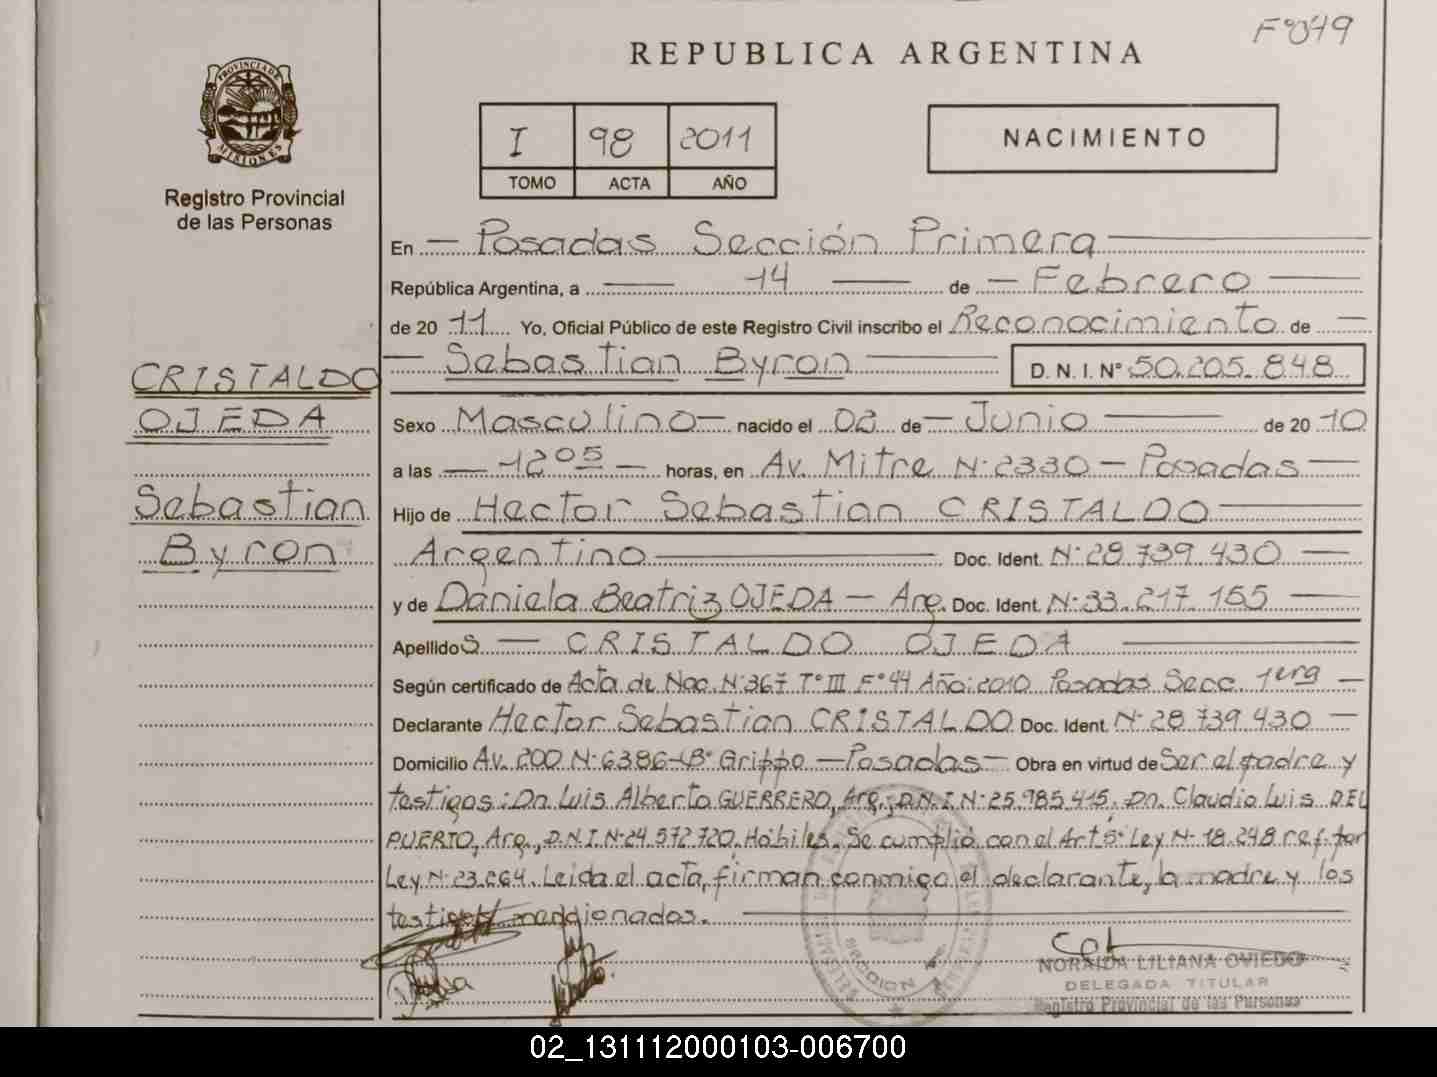 F°049
REPUBLICA ARGENTINA
PROVINCIA DE MISIONES
I 98 2011
TOMO ACTA AÑO
NACIMIENTO
Registro Provincial
de las Personas
En — Posadas Sección Primera
República Argentina, a — 14 — de — Febrero —
de 20 11 Yo, Oficial Público de este Registro Civil inscribo el Reconocimiento de —
— Sebastian Byron — D. N. I. N° 50.205.848
CRISTALDO
OJEDA
Sebastian
Byron
Sexo Masculino — nacido el 02 de — Junio — de 20 10
a las — 12 05 — horas, en Av. Mitre N° 2330 — Posadas —
Hijo de Hector Sebastian CRISTALDO —
Argentino — Doc. Ident. N° 28.739.430 —
y de Daniela Beatriz OJEDA — Arg. Doc. Ident. N° 33.217.155 —
Apellidos — CRISTALDO OJEDA —
Según certificado de Acta de Nac. N° 367 T° III F° 44 Año: 2010 Posadas Secc. 1era —
Declarante Hector Sebastian CRISTALDO Doc. Ident. N° 28.739.430 —
Domicilio Av. 200 N° 6386 - B° Grippo — Posadas — Obra en virtud de Ser el padre y
testigos: Dn. Luis Alberto GUERRERO, Arg., D.N.I. N° 25.985.415, Dn. Claudio Luis DEL
PUERTO, Arg., D.N.I. N° 24.572.720. Hábiles. Se cumplió con el Art 5° Ley N° 18.248 ref. por
Ley N° 23.264. Leida el acta, firman conmigo el declarante, la madre y los
testigos mencionados. —
SECCION
NORAIDA LILIANA OVIEDO
DELEGADA TITULAR
Registro Provincial de las Personas
02_131112000103-006700